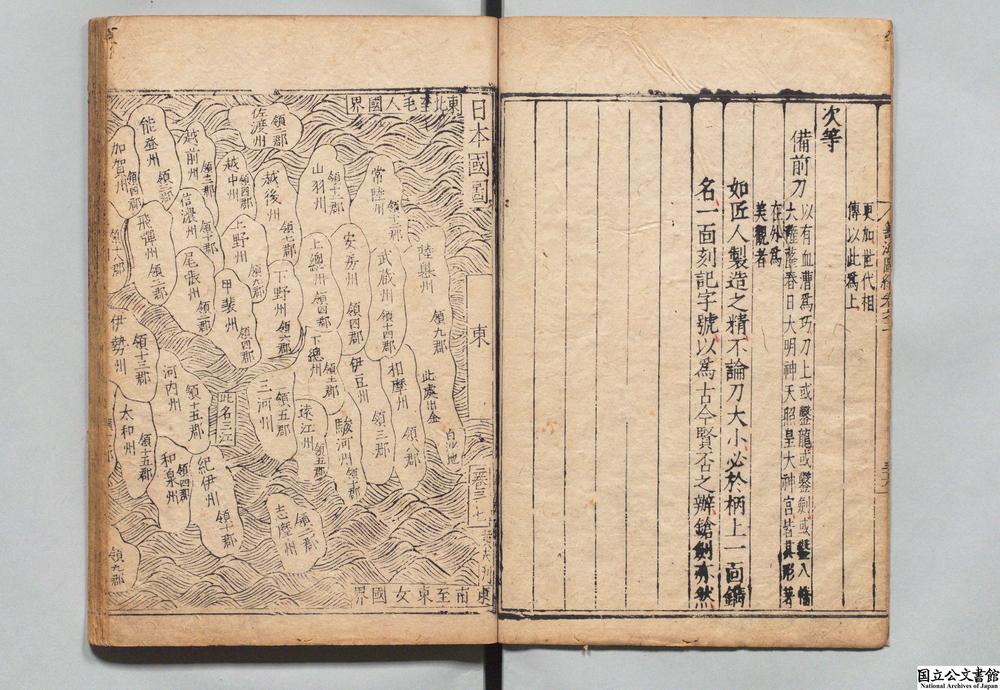 更加世代相
傳以此爲上
次等
備前刀
以有血漕爲巧刀上或鑿龍或鑿劍或鑿八幡
大菩薩春日大明神天照皇大神宮皆其形著
在外爲
美觀者
如匠人製造之精不論刀大小必於柄上一面鐫
名一面刻記字號以爲古今賢否之辦鎗劍亦然
日本國圖
東
卷三
東北至毛人國界
東南至東女國界
陸奧州
領九郡
此處出金
白
地
常陸州
領十二郡
武蔵州
領十四郡
相摩州
領八郡
山羽州
領十二郡
安房州
領四郡
伊豆州
領三郡
駿河州
領七郡
佐渡州
領三郡
越後州
領七郡
上總州
領四郡
下總州
領十二郡
下野州
領九郡
領六郡
遠江州
領五郡
三河州
領五郡
越中州
領四郡
上野州
甲裴州
領四郡
此名三江
越前州
領十二郡
信濃州
領十郡
尾張州
領三郡
能登州
領四郡
加賀州
領四郡
飛彈州
領三郡
領十八郡
伊勢州
領十三郡
河内州
領十五郡
太和州
領十五郡
和泉州
領四郡
紀伊州
領十郡
志摩州
領二郡
領九郡
国立公文書館
National Archives of Japan